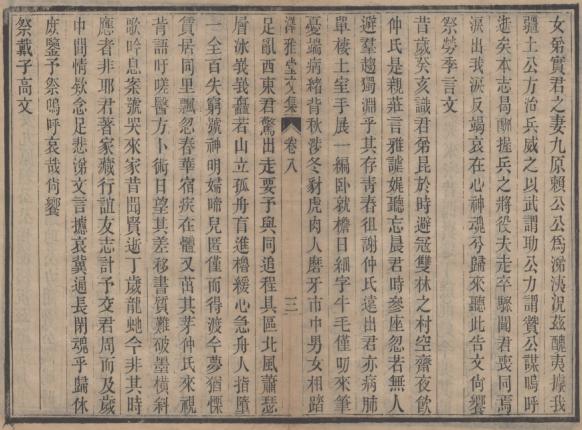 女弟實君之妻九原賴公公為涕洟況茲醜夷擾我
疆土公方治兵威之以武謂功公力謂贊公謀嗚呼
逝矣本志曷酬握兵之將役夫走卒驟聞君喪同焉
淚出我淚反竭哀在心神魂兮歸來聽此告文尙饗
祭勞季言文
昔歲癸亥識君弟昆於時避寇雙林之村空齋夜飲
仲氏是親莊言雅謔娓聽忘晨君時參座忽若無人
避羣趨獨淵乎其存青春徂謝仲氏遠出君亦病肺
單棲土室手展一編臥就檐日細字牛毛僅吻來筆
憂端病緒背秋涉冬豺虎肉人磨牙市中男女相蹈
澤雅堂文集
卷八
三
足亂西東君驚出走要予與同追程具區北風蕭瑟
層冰峩峩矗若山立孤舟首進櫓緩心急舟人指墮
一全百失窮號神明嬬啼兒匿僅而得渡今夢猶慄
賃居同里飄忽春華宿疾在體又茁其芽仲氏來視
背語吁嗟醫方卜術日望其差移書質難破墨橫斜
歌吟息案號哭來家昔聞賢逝丁歲龍虵今非其時
應者非耶君著家藏行誼友志計予交君周而及歲
中間情欸念足悲涕文言攄哀冀過長閉魂乎歸休
庶鑒予祭嗚呼哀哉尙饗
祭戴子高文